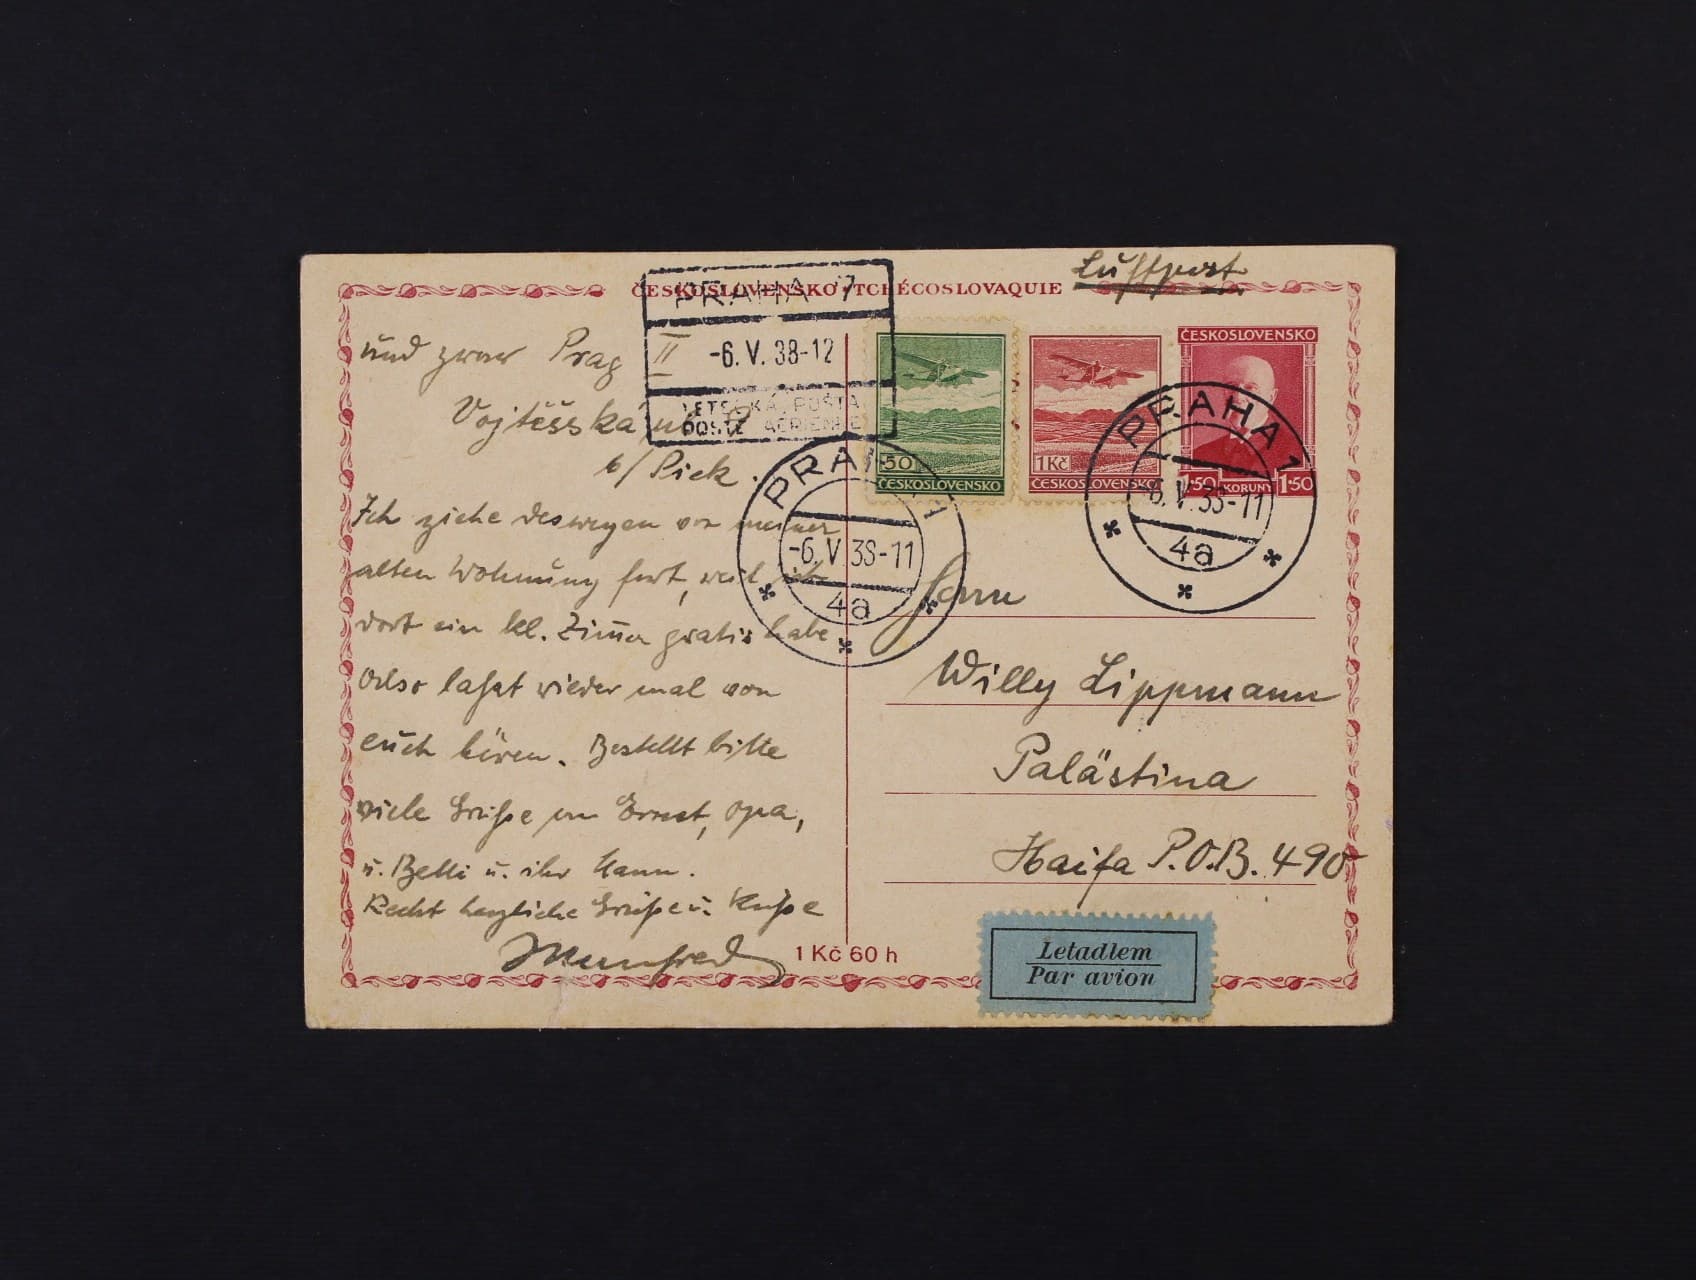 Luftpost
ČESKOSLOVENSKO · TCHÉCOSLOVAQUIE
PRAHA 7
-6. V. 38-12
LETECKÁ POŠTA
POSTE AÉRIENNE
50
ČESKOSLOVENSKO
1 Kč
ČESKOSLOVENSKO
ČESKOSLOVENSKO
1·50 KORUNY 1·50
PRAHA 1
-6. V. 38-11
4a
PRAHA 1
-6. V. 38-11
4a
und zwar Prag II
Vojtěšská
b/ Pick.
Ich ziehe deswegen von meiner
alten Wohnung fort, weil ich
dort ein kl. Zimmer gratis habe
Also laßt wieder mal von
euch hören. Bestellt bitte
viele Grüße an Ernst, Opa,
u. Betti u. ihr Mann.
Recht herzliche Grüße u. Küsse
Manfred
Willy Lippmann
Palästina
Haifa P.O.B. 490
1 Kč 60 h
Letadlem
Par avion